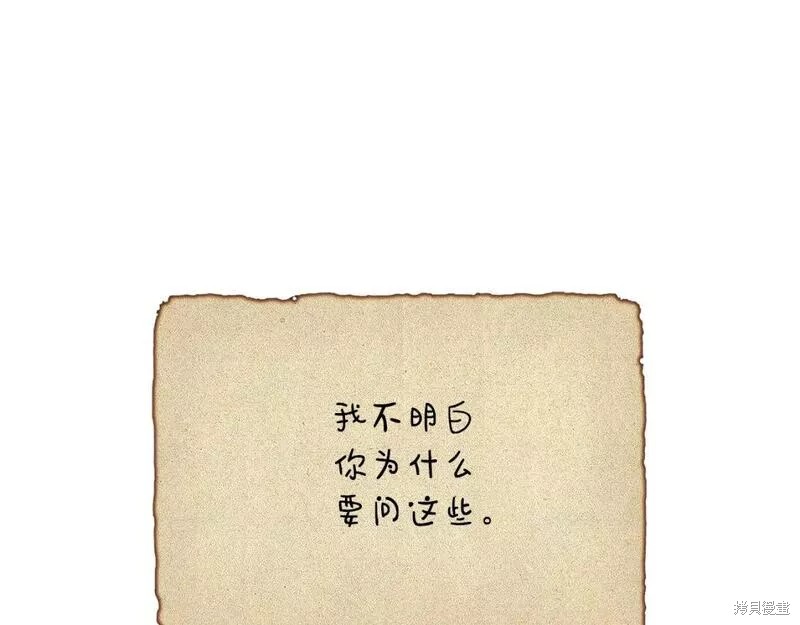 我不明白
你为什么
要问这些。
拷貝漫畫